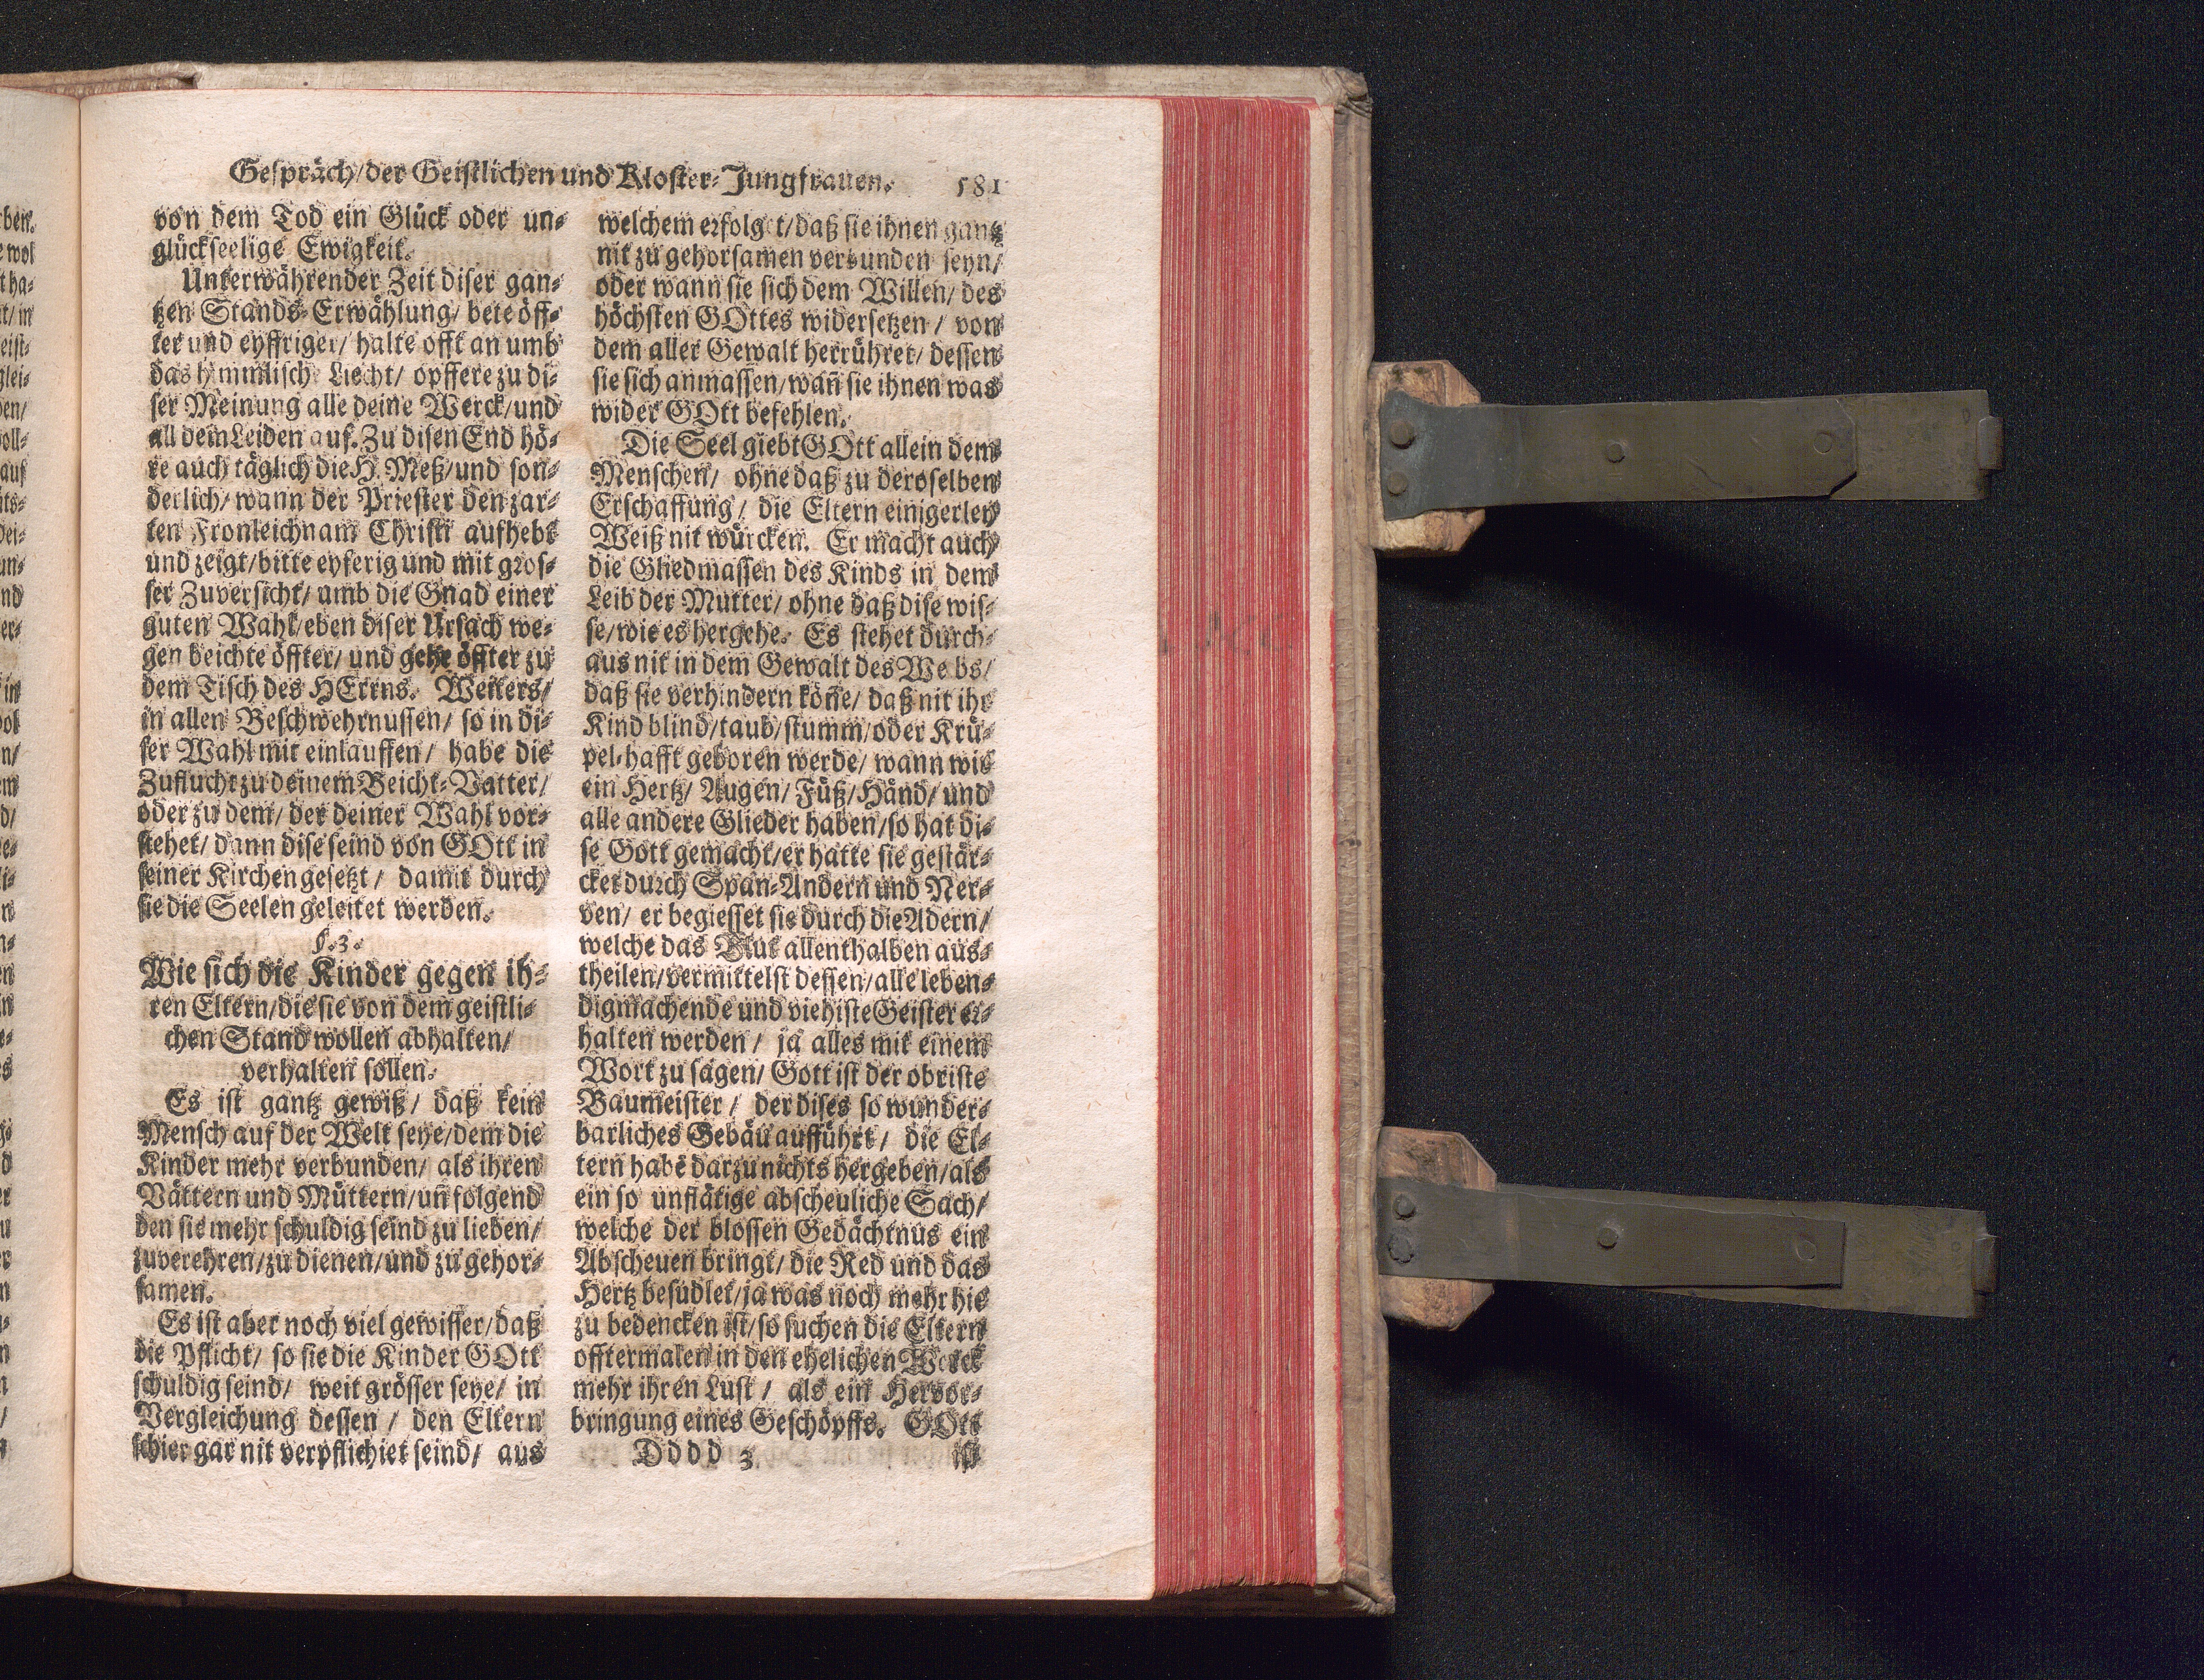 Gespräch/der Geistlichen und Kloster-Jungfrauen. 581
von dem Tod ein Glück oder un-
glückseelige Ewigkeit.
Unterwährender Zeit diser gan-
tzen Stands-Erwählung/ bete öff-
ter und eyffriger/ halte offt an umb
das himmlische Liecht/ opffere zu di-
ser Meinung alle deine Werck/und
all dein Leiden auf. Zu disen End hö-
re auch täglich die H. Meß/und son-
derlich/ wann der Priester den zar-
ten Fronleichnam Christi aufhebt
und zeigt/bitte eyferig und mit gros-
ser Zuversicht/ umb die Gnad einer
guten Wahl/eben diser Ursach we-
gen beichte öffter/ und gehe öffter zu
dem Tisch des HErrns. Weiters/
in allen Beschwehrnussen/ so in di-
ser Wahl mit einlauffen/ habe die
Zuflucht zu deinem Beicht-Vatter/
oder zu dem/ der deiner Wahl vor-
stehet/ dann dise seind von GOtt in
seiner Kirchen gesetzt/ damit durch
sie die Seelen geleitet werden.
§. 3.
Wie sich die Kinder gegen ih-
ren Eltern/die sie von dem geistli-
chen Stand wollen abhalten/
verhalten sollen.
Es ist gantz gewiß/ daß kein
Mensch auf der Welt seye/dem die
Kinder mehr verbunden/ als ihren
Vättern und Müttern/uñ folgend
den sie mehr schuldig seind zu lieben/
zuverehren/zu dienen/und zu gehor-
samen.
Es ist aber noch viel gewisser/daß
die Pflicht/ so sie die Kinder GOtt
schuldig seind/ weit grösser seye/ in
Vergleichung dessen/ den Eltern
schier gar nit verpflichtet seind/ aus
welchem erfolget/daß sie ihnen gantz
nit zu gehorsamen verbunden seyn/
oder wann sie sich dem Willen/ des
höchsten GOttes widersetzen/ von
dem aller Gewalt herrühret/ dessen
sie sich anmassen/wañ sie ihnen was
wider GOtt befehlen.
Die Seel giebt GOtt allein dem
Menschen/ ohne daß zu deroselben
Erschaffung/ die Eltern einigerley
Weiß nit würcken. Er macht auch
die Gliedmassen des Kinds in dem
Leib der Mutter/ ohne daß dise wis-
se/wie es hergehe. Es stehet durch-
aus nit in dem Gewalt des Weibs/
daß sie verhindern köñe/ daß nit ihr
Kind blind/taub/stumm/oder Krü-
pel-hafft geboren werde/ wann wir
ein Hertz/ Augen/ Füß/Händ/ und
alle andere Glieder haben/so hat di-
se Gott gemacht/er hatte sie gestär-
cket durch Span-Andern und Ner-
ven/ er begiesset sie durch die Adern/
welche das Blut allenthalben aus-
theilen/vermittelst dessen/alle leben-
digmachende und viehiste Geister er-
halten werden/ ja alles mit einem
Wort zu sagen/ Gott ist der obriste
Baumeister/ der dises so wunder-
barliches Gebäu aufführt/ die El-
tern habē darzu nichts hergeben/als
ein so unflätige abscheuliche Sach/
welche der blossen Gedächtnus ein
Abscheuen bringt/ die Red und das
Hertz besudlet/ja was noch mehr hie
zu bedencken ist/so suchen die Eltern
offtermalen in den ehelichen Werck
mehr ihren Lust/ als ein Hervor-
bringung eines Geschöpffs. GOtt
Dddd 3 ist